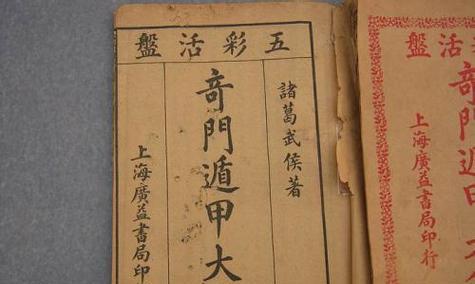 五彩活盤
諸葛武侯著
奇門遁甲大
上海廣益書局印
活盤
奇門遁甲大
上海廣益書局印行